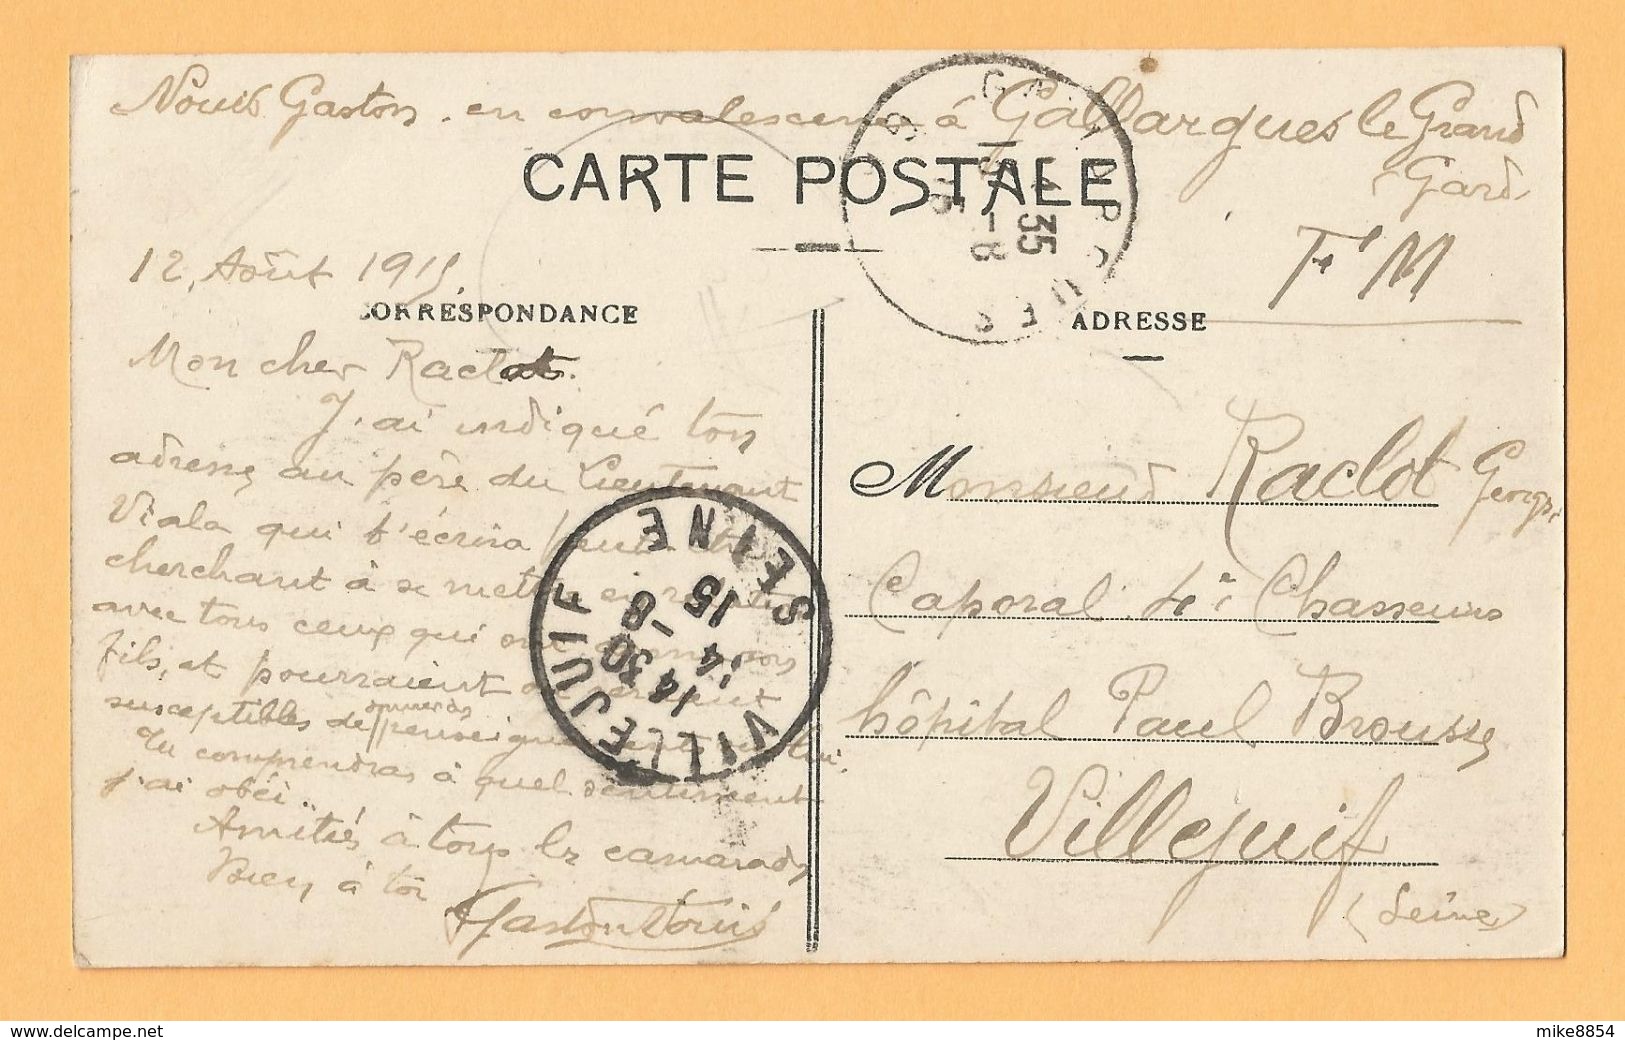 Gaston en convalescence à Gallargues le Grand
(Gard)
CARTE POSTALE
12 Août 1915
F M
CORRESPONDANCE
Mon cher Raclot.
J'ai indiqué ton
adresse au père du Lieutenant
Viala qui t'écrira peut être
cherchant à se mettre en relation
avec tous ceux qui ont connu son
fils, et pourraient
susceptibles de renseignements
Tu comprendras à quel sentiment
j'ai obéi.
Amitiés à tous les camarades
Bien à toi
Gaston
GALLARGUES
35
ADRESSE
Monsieur Raclot Georges
Caporal 4e Chasseurs
hôpital Paul Brousse
Villejuif
(Seine)
VILLEJUIF SEINE
14 30
14 -8
15
www.delcampe.net
mike8854